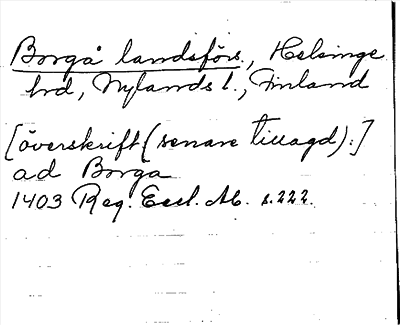 Borgå landsförs., Helsinge
hrd, Nylands l., Finland
[överskrift (senare tillagd):]
ad Borga
1403 Reg. Eccl. Ab. s. 222.